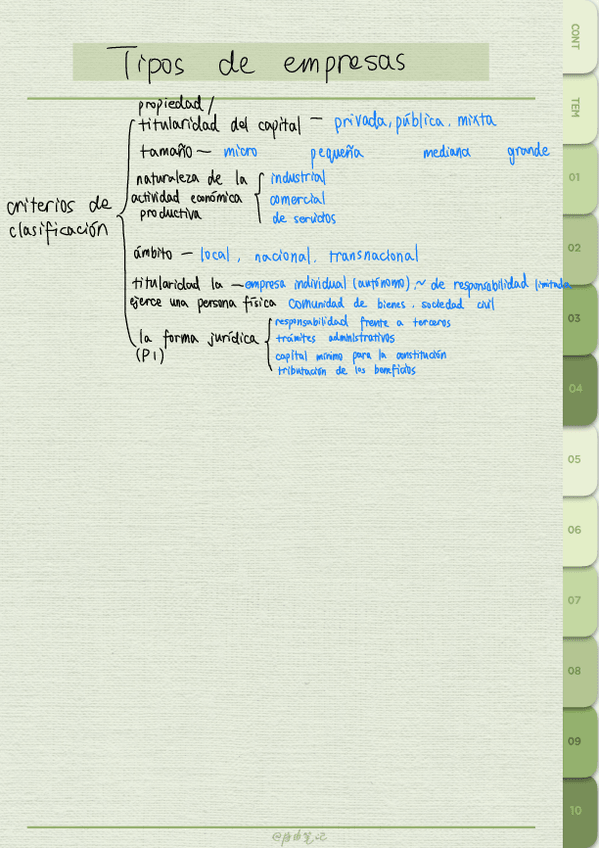 Tipos de empresas
propiedad/
titularidad del capital — privada, pública. mixta
tamaño — micro pequeña mediana grande
criterios de clasificación
naturaleza de la actividad económica productiva
industrial
comercial
de servicios
ámbito — local, nacional, transnacional
titularidad la — empresa individual (autónomo). ~ de responsabilidad limitada
ejerce una persona física comunidad de bienes. sociedad civil
la forma jurídica
(P1)
responsabilidad frente a terceros
trámites administrativos
capital mínimo para la constitución
tributación de los beneficios
CONT
TEM
01
02
03
04
05
06
07
08
09
10